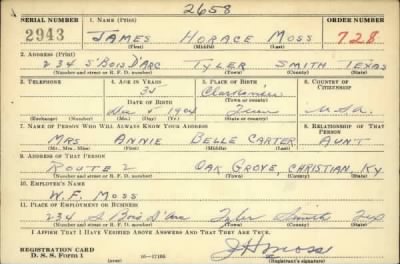 2658
SERIAL NUMBER 1. NAME (Print) ORDER NUMBER
2943 JAMES HORACE MOSS 728
(First) (Middle) (Last)
2. ADDRESS (Print)
234 S' BOIS D'ARC TYLER SMITH TEXAS
(Number and street or R. F. D. number) (Town) (County) (State)
3. TELEPHONE 4. AGE IN YEARS 5. PLACE OF BIRTH 6. COUNTRY OF CITIZENSHIP
35
DATE OF BIRTH (Town or county)
Dec 1904 U.S.A.
(Exchange) (Number) (Mo.) (Day) (Yr.) (State or country)
7. NAME OF PERSON WHO WILL ALWAYS KNOW YOUR ADDRESS 8. RELATIONSHIP OF THAT PERSON
MRS ANNIE BELLE CARTER AUNT
(Mr., Mrs., Miss) (First) (Middle) (Last)
9. ADDRESS OF THAT PERSON
ROUTE 2 OAK GROVE, CHRISTIAN, KY.
(Number and street or R. F. D. number) (Town) (County) (State)
10. EMPLOYER'S NAME
W. F. MOSS
11. PLACE OF EMPLOYMENT OR BUSINESS
234 S. Bois D'Arc Tyler Smith Tex
(Number and street or R. F. D. number) (Town) (County) (State)
I AFFIRM THAT I HAVE VERIFIED ABOVE ANSWERS AND THAT THEY ARE TRUE.
REGISTRATION CARD
D. S. S. Form 1 (over) 16—17105 J H Moss